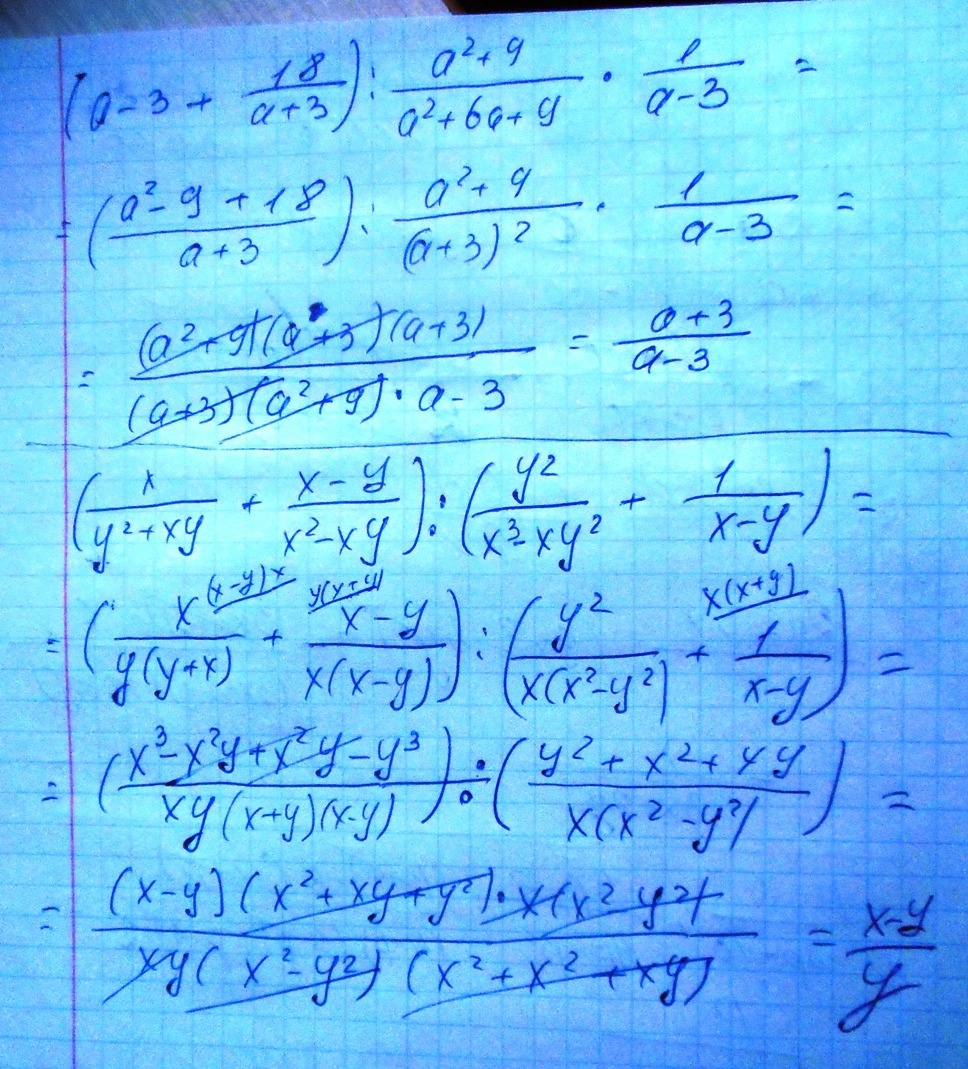 (a-3 + 18/(a+3)) : (a²+9)/(a²+6a+9) · 1/(a-3) =
= ((a²-9+18)/(a+3)) : (a²+9)/(a+3)² · 1/(a-3) =
= (a²+9)(a+3)(a+3)/((a+3)(a²+9)·a-3) = (a+3)/(a-3)
(x/(y²+xy) + (x-y)/(x²-xy)) : (y²/(x³-xy²) + 1/(x-y)) =
(x-y)x y(x+y) x(x+y)
= (x/(y(y+x)) + (x-y)/(x(x-y))) : (y²/(x(x²-y²)) + 1/(x-y)) =
= ((x³-x²y+x²y-y³)/(xy(x+y)(x-y))) : ((y²+x²+xy)/(x(x²-y²))) =
= (x-y)(x²+xy+y²)·x(x²-y²)/(xy(x²-y²)(x²+x²+xy)) = (x-y)/y